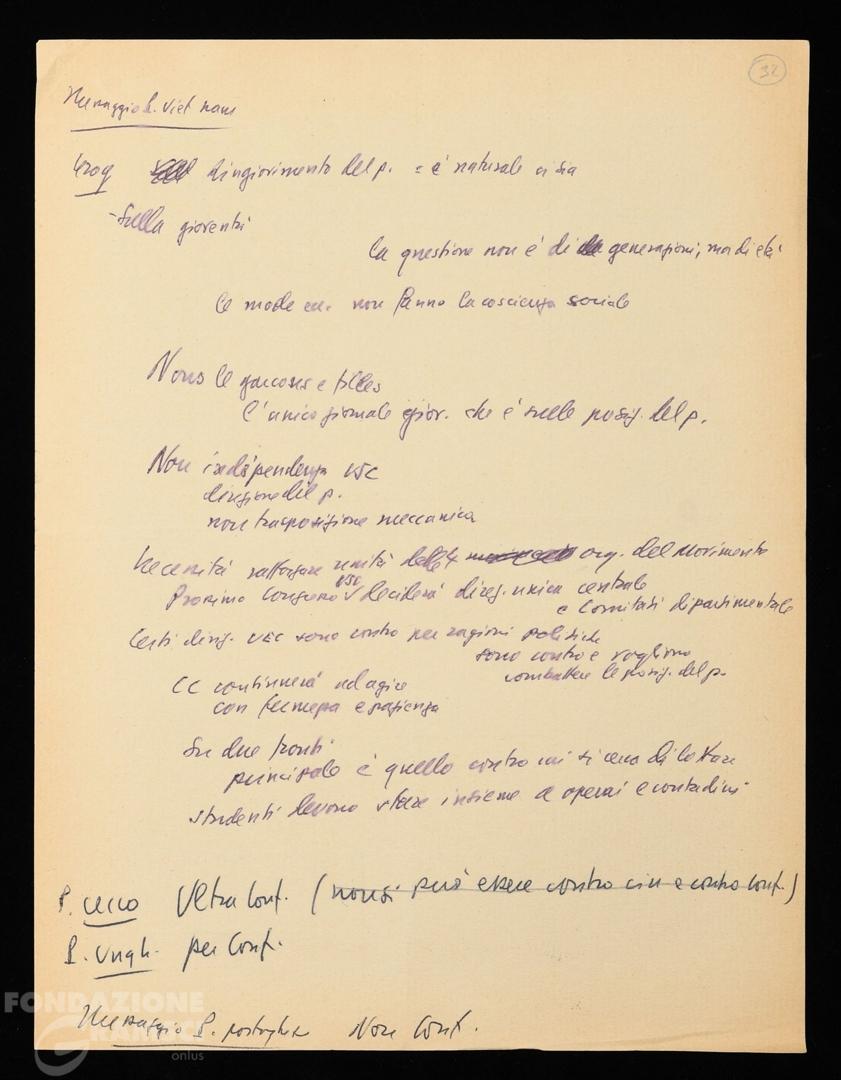 32
Messaggio P. Viet nam
del p. = è naturale ci sia
- Sulla gioventù
la questione non è di generazioni, ma di età
le mode ecc. non fanno la coscienza sociale
Nous les garçons et filles
l'unico giornale giov. che è sulle posiz. del p.
Non indipendenza UEC
direzione del p.
non trasposizione meccanica
Necessità rafforzare unità delle 4 org. del movimento
Prossimo Congresso deciderà direz. unica centrale
e Comitati dipartimentale
Certi dirig. UEC sono contro per ragioni politiche
sono contro e vogliono
combattere le posiz. del p.
CC continuerà ad agire
con fermezza e pazienza
Su due fronti
principale è quello contro cui si cessa di lottare
studenti devono stare insieme a operai e contadini
P. ceco Ultra Conf. (non si può essere contro cin e contro Conf.)
P. Ungh. per Conf.
Messaggio P. Non Conf.
FONDAZIONE
GRAMSCI
onlus